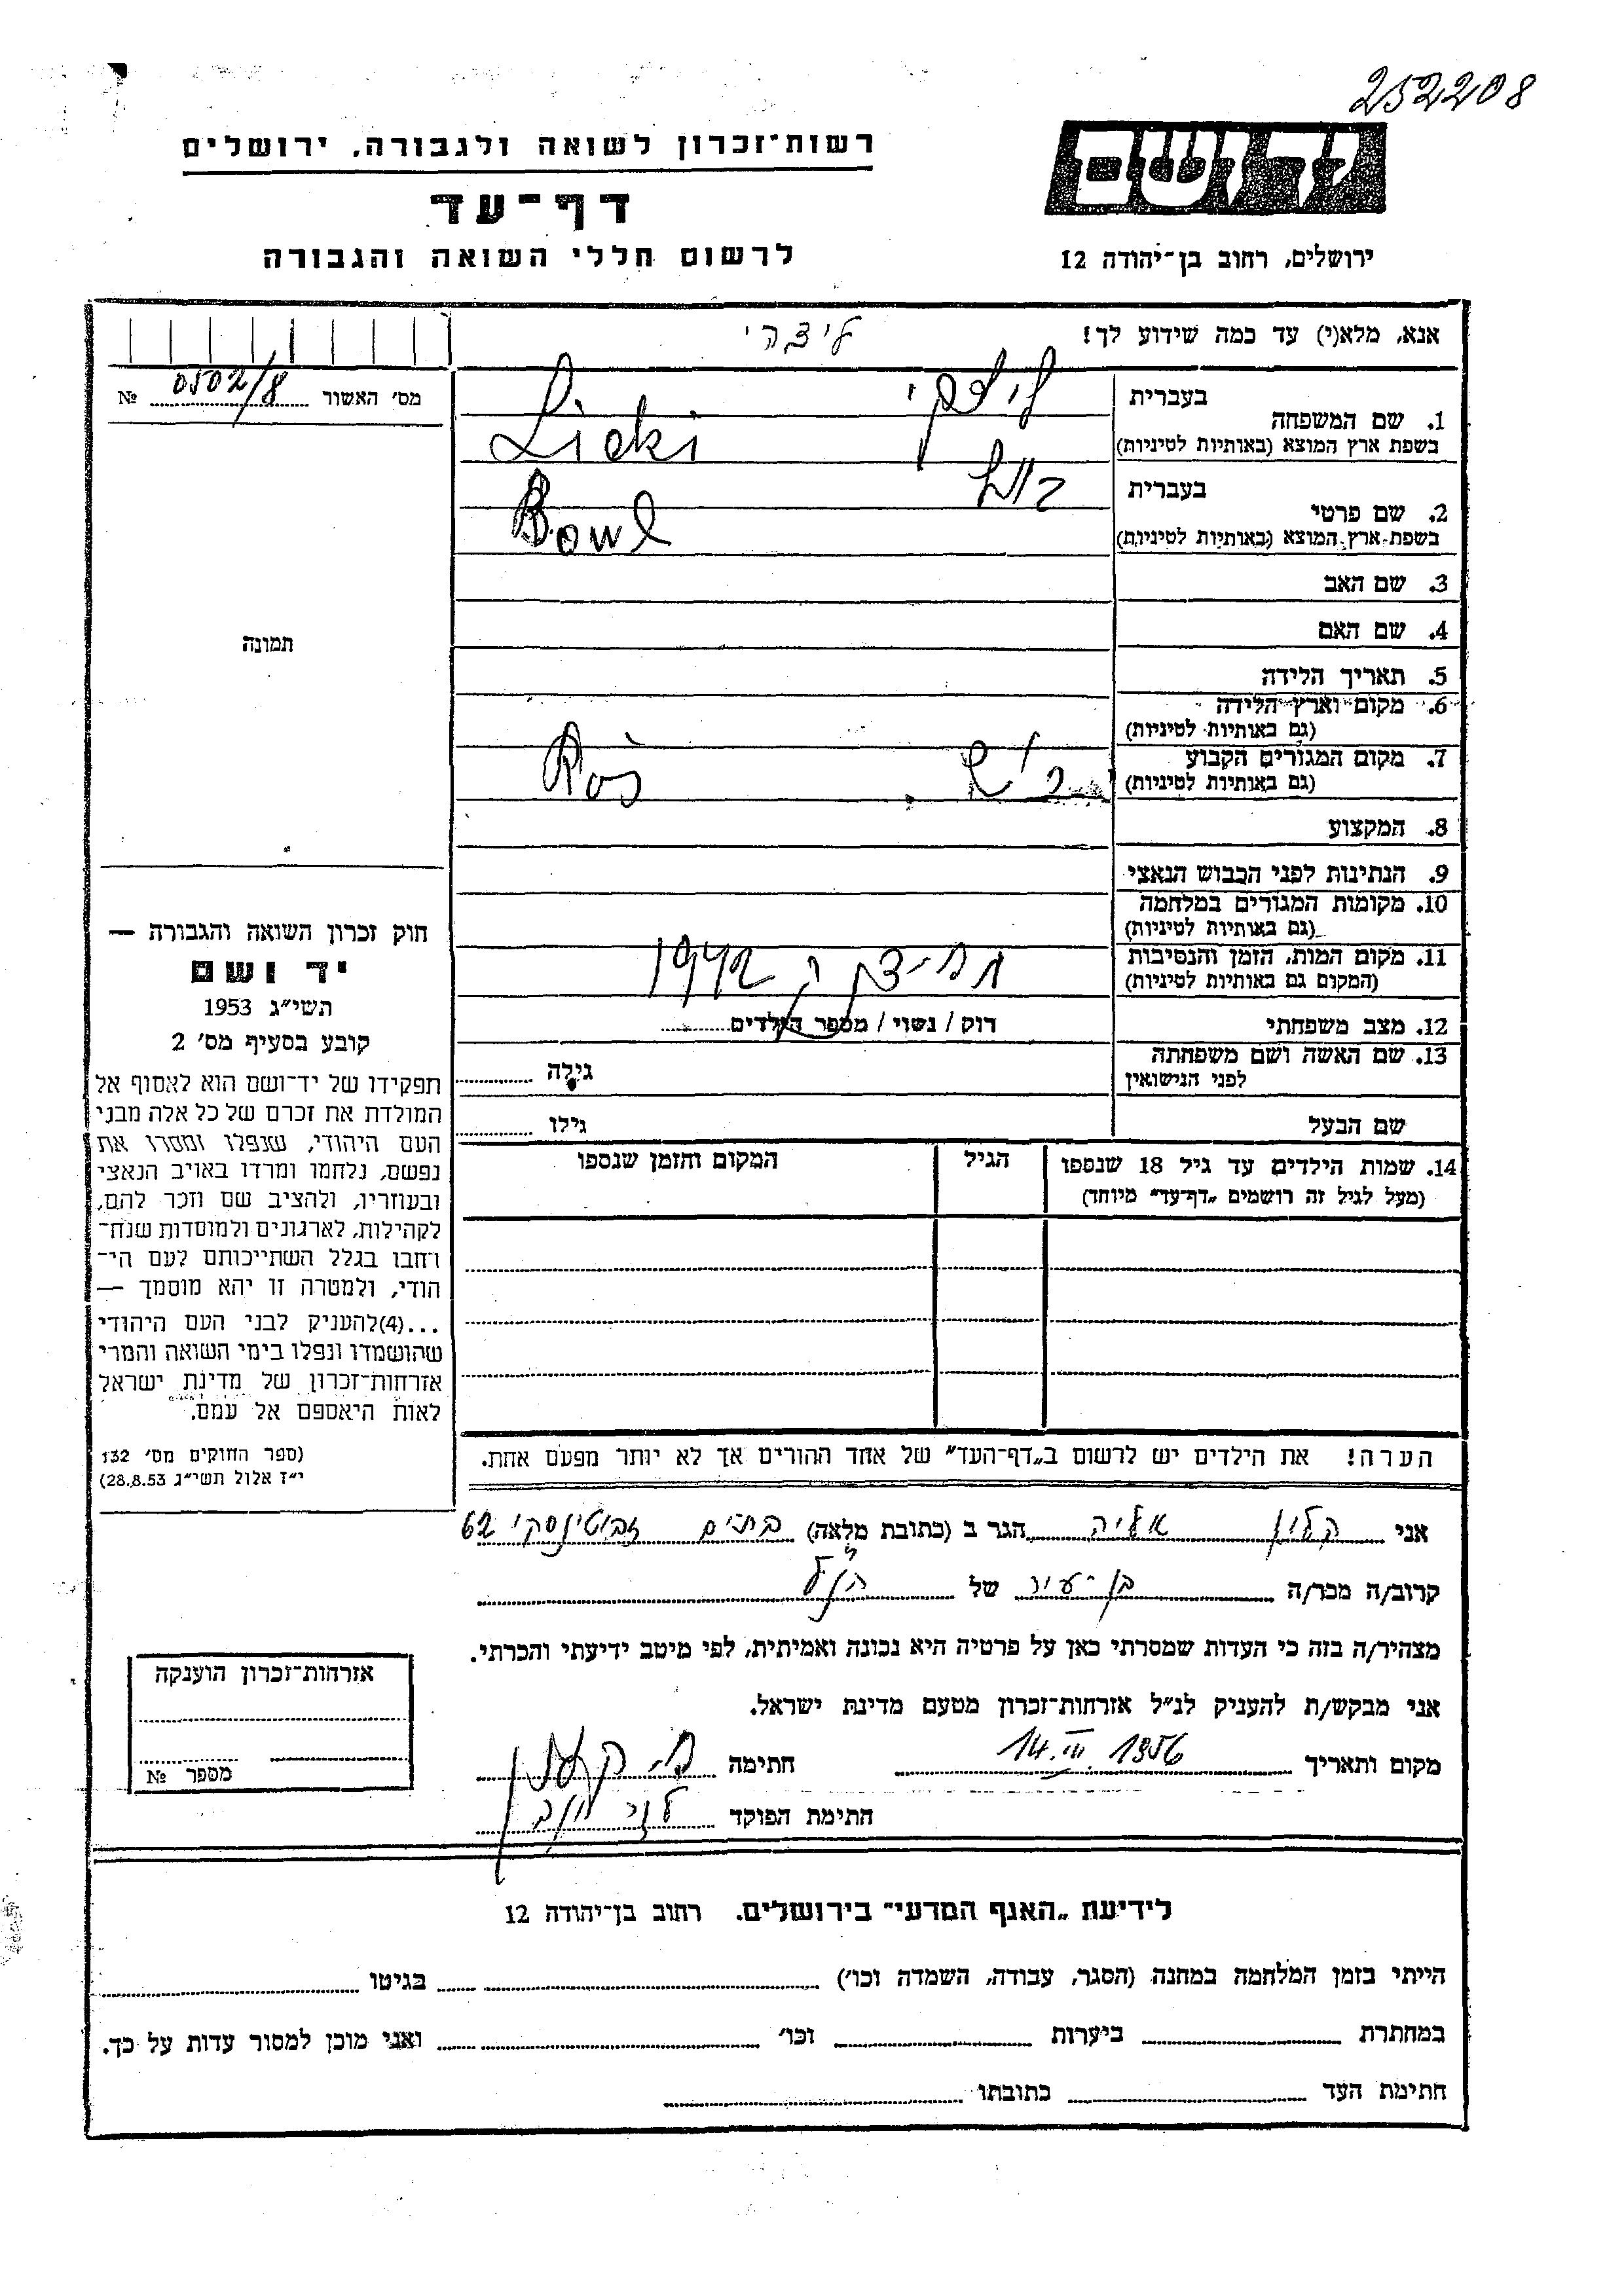 252208
רשות־זכרון לשואה ולגבורה, ירושלים
יד ושם
דף־עד
לרשום חללי השואה והגבורה
ירושלים, רחוב בן־יהודה 12
אנא, מלא(י) עד כמה שידוע לך!
מס׳ האשור № 0502/8
1. שם המשפחה
בעברית
בשפת ארץ המוצא (באותיות לטיניות) Licki
2. שם פרטי
בעברית
בשפת ארץ המוצא (באותיות לטיניות) Bowl
3. שם האב
4. שם האם
תמונה
5. תאריך הלידה
6. מקום וארץ הלידה
(גם באותיות לטיניות)
7. מקום המגורים הקבוע
(גם באותיות לטיניות) Ros
8. המקצוע
9. הנתינות לפני הכבוש הנאצי
10. מקומות המגורים במלחמה
(גם באותיות לטיניות)
11. מקום המות, הזמן והנסיבות
(המקום גם באותיות לטיניות) 1942
12. מצב משפחתי רוק / נשוי / מספר הילדים
13. שם האשה ושם משפחתה
לפני הנישואין גילה
שם הבעל גילו
14. שמות הילדים עד גיל 18 שנספו
(מעל לגיל זה רושמים „דף־עד״ מיוחד)
הגיל
המקום והזמן שנספו
חוק זכרון השואה והגבורה —
יד ושם
תשי״ג 1953
קובע בסעיף מס׳ 2
תפקידו של יד־ושם הוא לאסוף אל
המולדת את זכרם של כל אלה מבני
העם היהודי, שנפלו ומסרו את
נפשם, נלחמו ומרדו באויב הנאצי
ובעוזריו, ולהציב שם וזכר להם,
לקהילות, לארגונים ולמוסדות שנח־
רחבו בגלל השתייכותם לעם הי־
הודי, ולמטרה זו יהא מוסמך —
...(4) להעניק לבני העם היהודי
שהושמדו ונפלו בימי השואה והמרי
אזרחות־זכרון של מדינת ישראל
לאות היאספם אל עמם.
(ספר החוקים מס׳ 132
י״ז אלול תשי״ג 28.8.53)
הערה! את הילדים יש לרשום ב„דף־העד״ של אחד ההורים אך לא יותר מפעם אחת.
אני קלין אליה הגר ב (כתובת מלאה) בת־ים זבוטינסקי 62
קרוב/ה מכר/ה בן־עיר של הנ״ל
מצהיר/ה בזה כי העדות שמסרתי כאן על פרטיה היא נכונה ואמיתית, לפי מיטב ידיעתי והכרתי.
אני מבקש/ת להעניק לנ״ל אזרחות־זכרון מטעם מדינת ישראל.
מקום ותאריך 14.III.1956 חתימה
חתימת הפוקד
אזרחות־זכרון הוענקה
מספר №
לידיעת „האגף המדעי״ בירושלים. רחוב בן־יהודה 12
הייתי בזמן המלחמה במחנה (הסגר, עבודה, השמדה וכו׳) בגיטו
במחתרת ביערות וכו׳ ואני מוכן למסור עדות על כך.
חתימת העד כתובתו